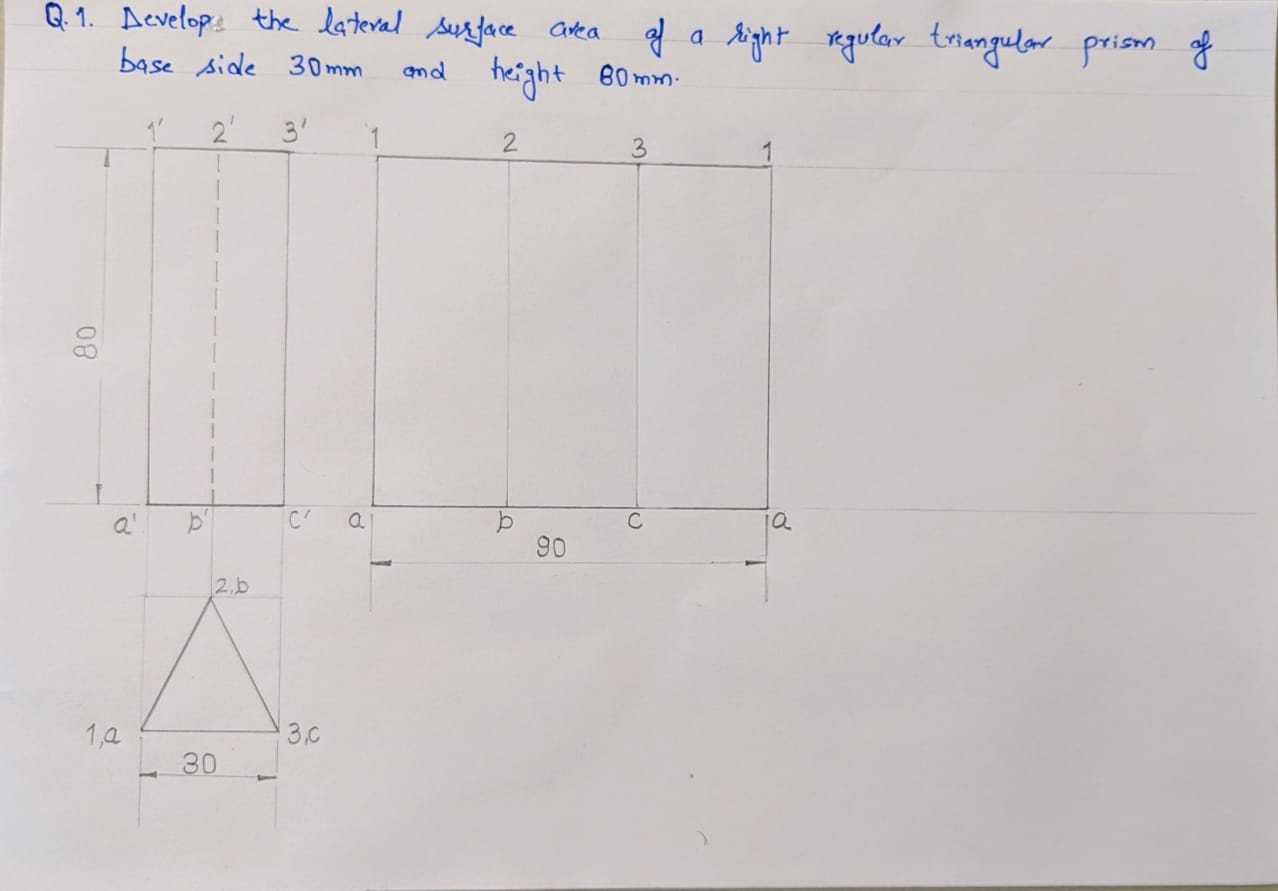 Q.1. Develop the lateral surface area of a right regular triangular prism of
base side 30mm and height 80mm.
1' 2' 3' 1 2 3 1
80
a' b' c' a b c a
90
2,b
1,a 3,c
30